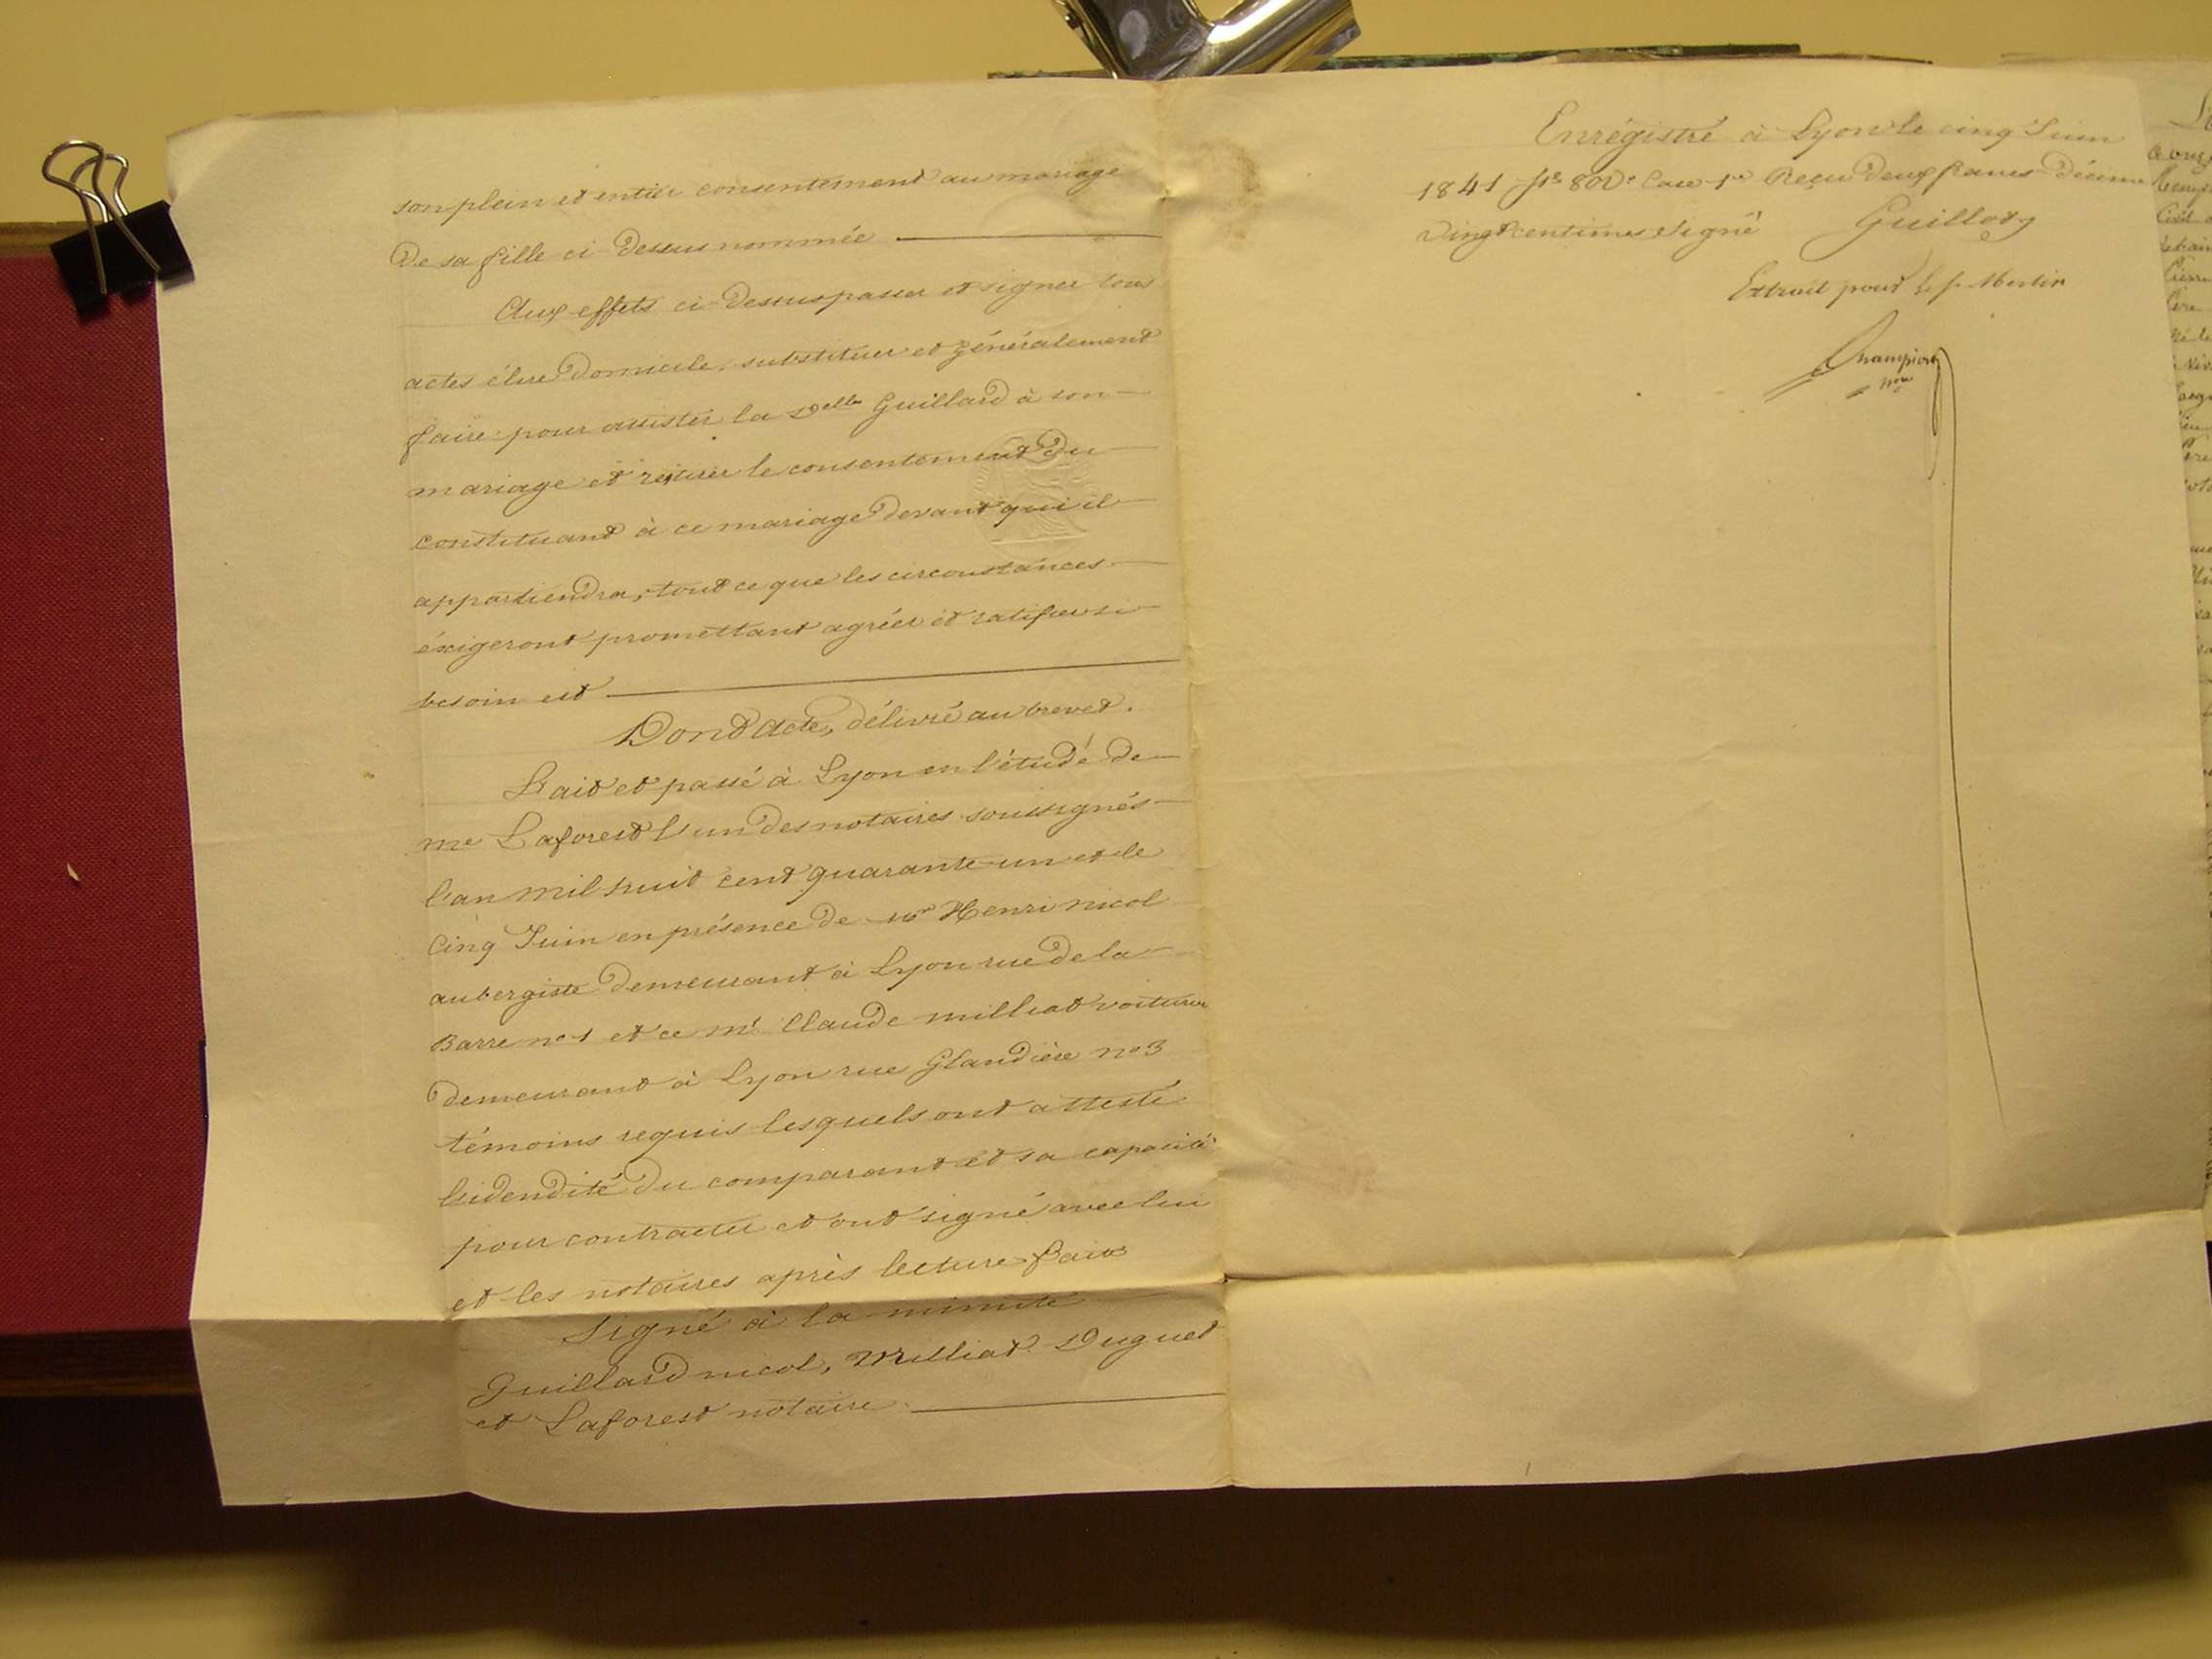 son plein et entier consentement au mariage
De sa fille ci Dessus nommée
Aux effets ci-Dessus passer et signer tous
actes élire Domicile, substituer et généralement
faire pour assister la Delle Guillard à son
mariage et réitérer le consentement Du
constituant à ce mariage Devant qui il
appartiendra, tout ce que les circonstances
éxigeront promettant agréer et ratifier si
besoin est
Dont Acte, délivré au brevet.
Fait et passé à Lyon en l'étude De
me Laforest l'un des notaires soussignés
l'an mil huit cent quarante un et le
Cinq Juin en présence De mr Henri nicol
aubergiste Demeurant à Lyon rue De la
Barre no 1 et ce Mr Claude milliat voiturier
Demeurant à Lyon rue Glandière no 3
témoins requis lesquels ont attesté
l'idendité Du comparant et sa capacité
pour contracter et ont signé avec lui
et les notaires après lecture faite
Signé à la minute
Guillard nicol, Milliat Duguet
et Laforest notaire
Enrégistré à Lyon le cinq Juin
1841 fo 80 Vo Case 1re Reçu Deux francs Décime
Vingt centimes signé Guillot
Extrait pour le s. Martin
Champion
nre